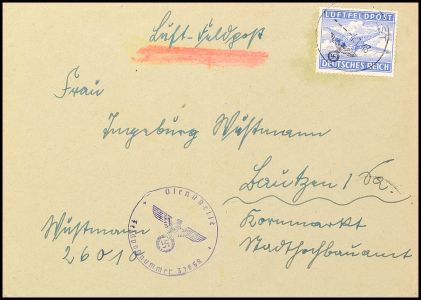 Luft-Feldpost
LUFTFELDPOST
DEUTSCHES REICH
Frau
Ingeburg Wüstmann
Bautzen 1 Sa.
Kornmarkt
Stadthochbauamt
Wüstmann
26010
Dienststelle
Feldpostnummer